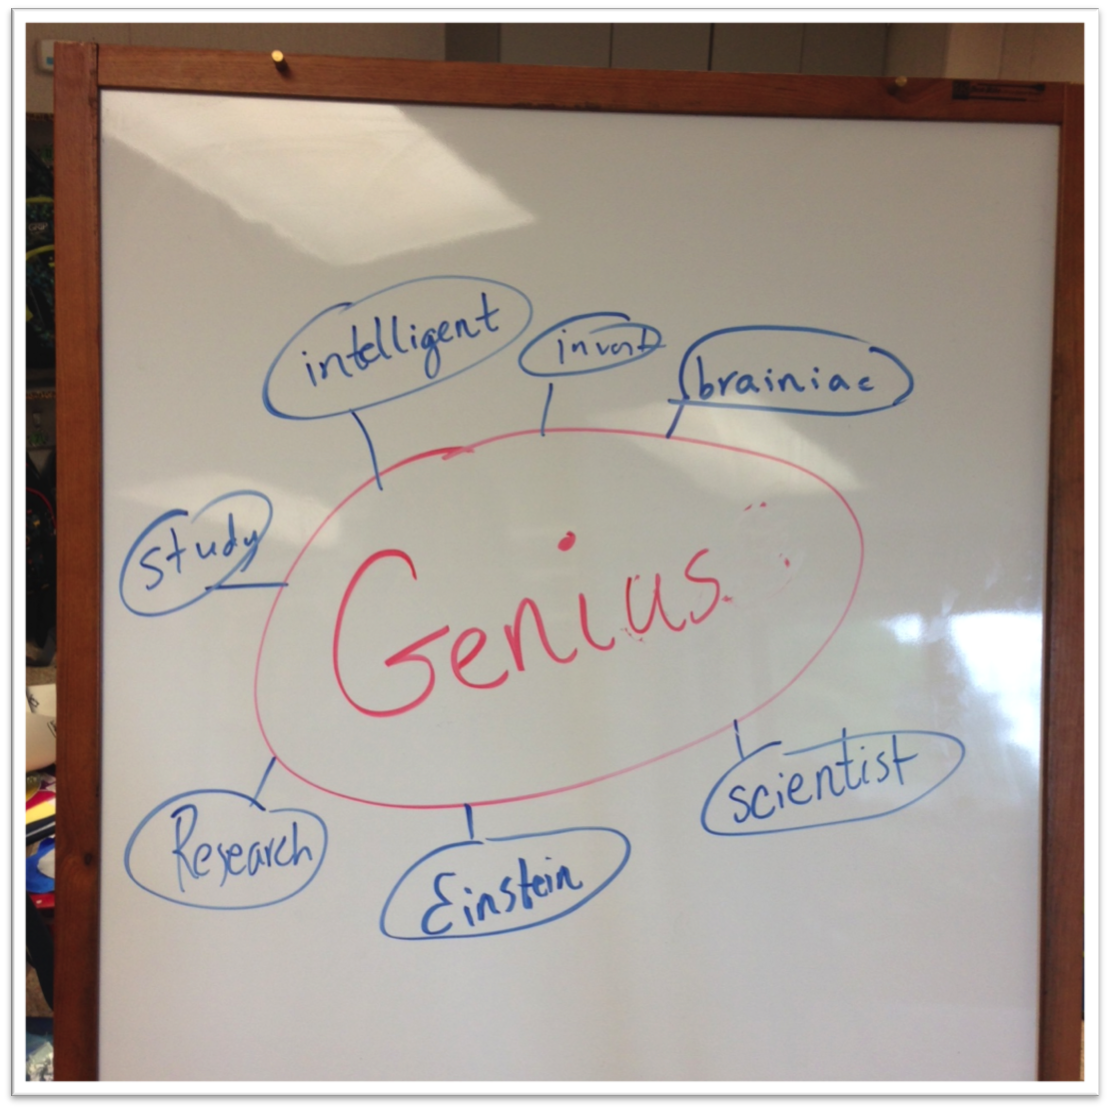 intelligent
invent
brainiac
study
Genius
scientist
Research
Einstein